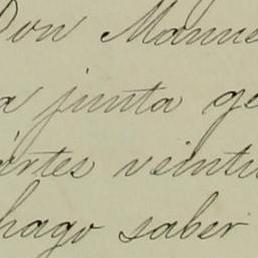 Don Manue
a junta ge
értes veintiu
hago saber